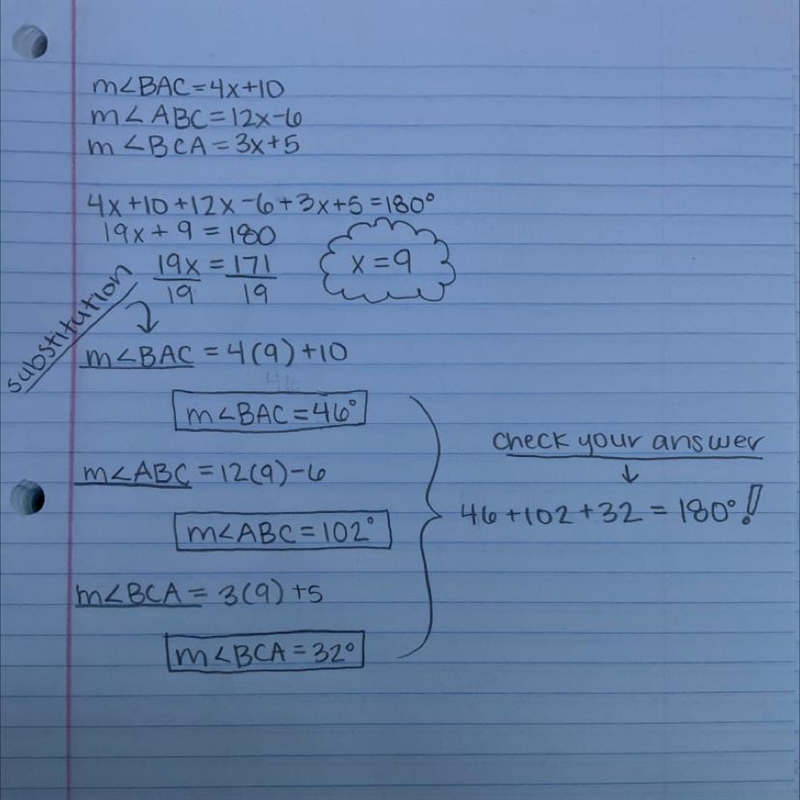 m∠BAC=4x+10
m∠ABC=12x-6
m∠BCA=3x+5
4x+10+12x-6+3x+5=180°
19x+9=180
19x=171
19 19
x=9
substitution
m∠BAC=4(9)+10
m∠BAC=46°
m∠ABC=12(9)-6
m∠ABC=102°
m∠BCA=3(9)+5
m∠BCA=32°
check your answer
46+102+32=180°!